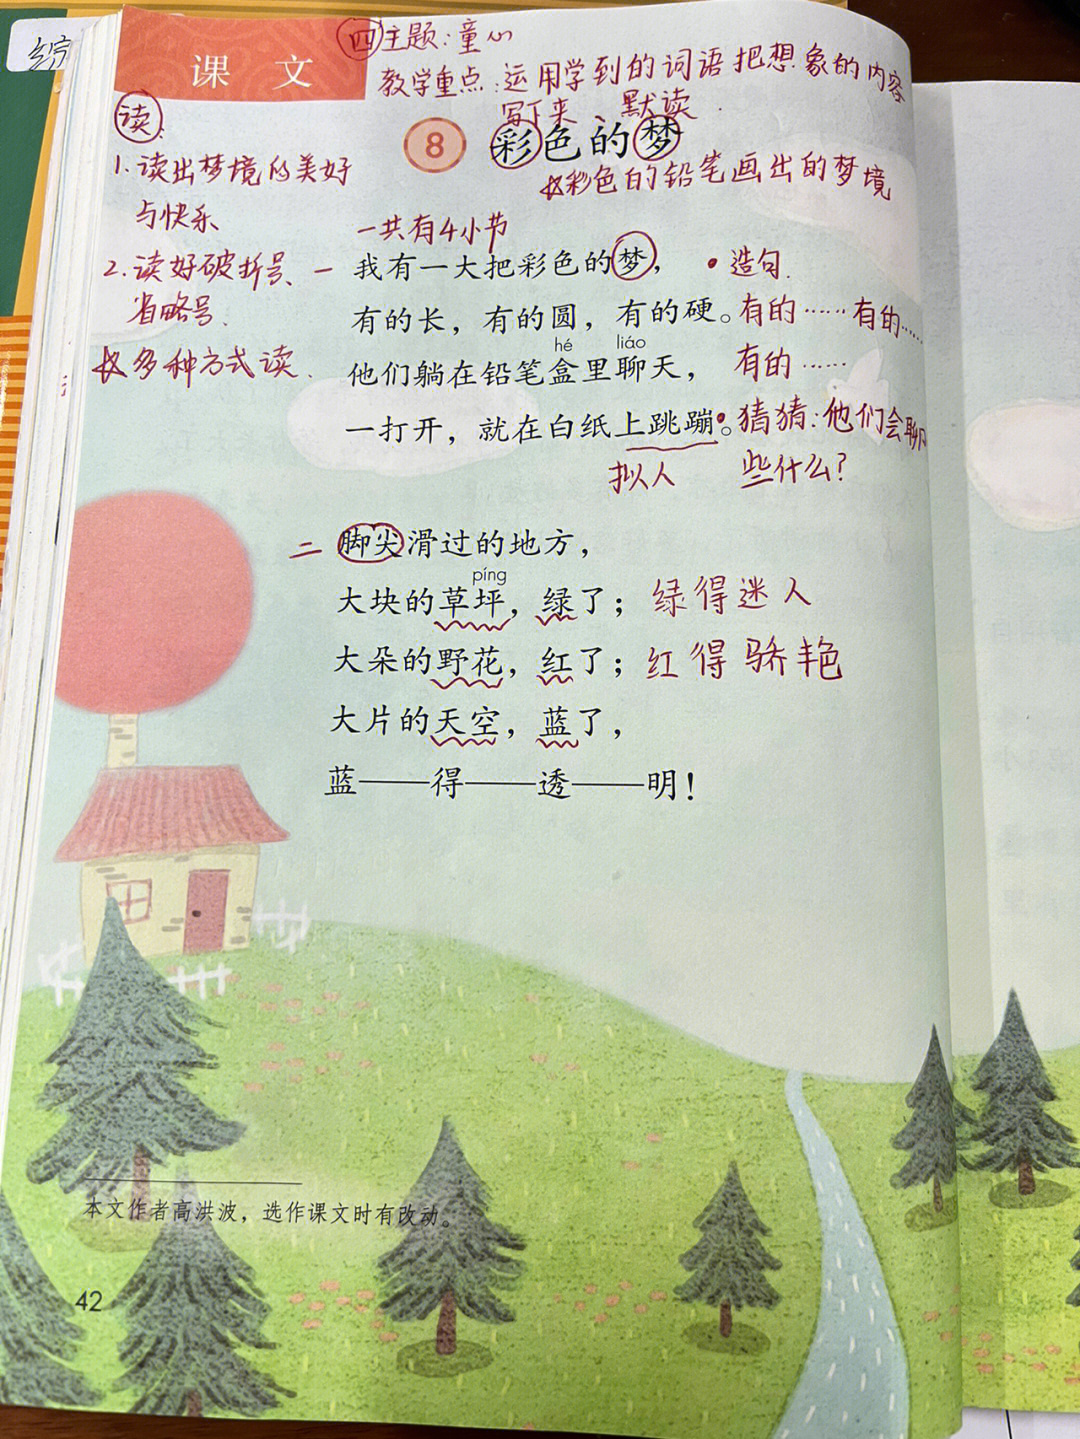 四主题:童心
课 文
教学重点:运用学到的词语把想象的内容
写下来、默读
读:
8 彩色的梦
1.读出梦境的美好
与快乐
彩色的铅笔画出的梦境
一共有4小节
2.读好破折号、
省略号.
多种方式读.
一 我有一大把彩色的梦, •造句.
有的长,有的圆,有的硬。有的……有的……
hé liáo
他们躺在铅笔盒里聊天, 有的……
一打开,就在白纸上跳蹦。•猜猜:他们会聊
拟人 些什么?
二 脚尖滑过的地方,
píng
大块的草坪,绿了; 绿得迷人
大朵的野花,红了; 红得骄艳
大片的天空,蓝了,
蓝——得——透——明!
本文作者高洪波,选作课文时有改动。
42